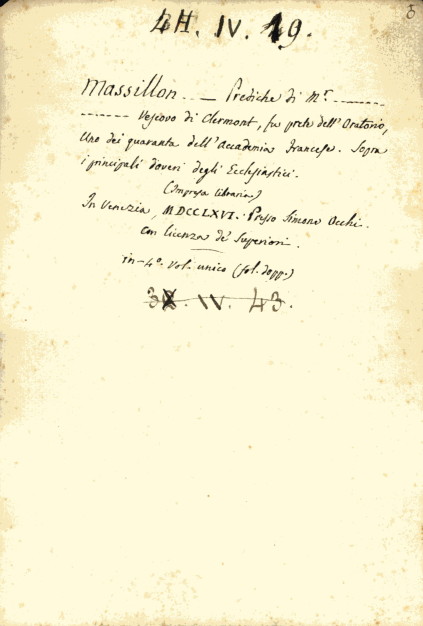 4H. IV. 19.
Massillon — Prediche di Mr. --------
-------- Vescovo di Clermont, fu prete dell'Oratorio,
Uno dei quaranta dell'Accademia Francese. Sopra
i principali doveri degli Ecclesiastici.
(Impresa libraria)
In Venezia, MDCCLXVI. Presso Simone Occhi.
con licenza de' Superiori.
in-4º. Vol. unico (fol. dopp.)
IV. 43.